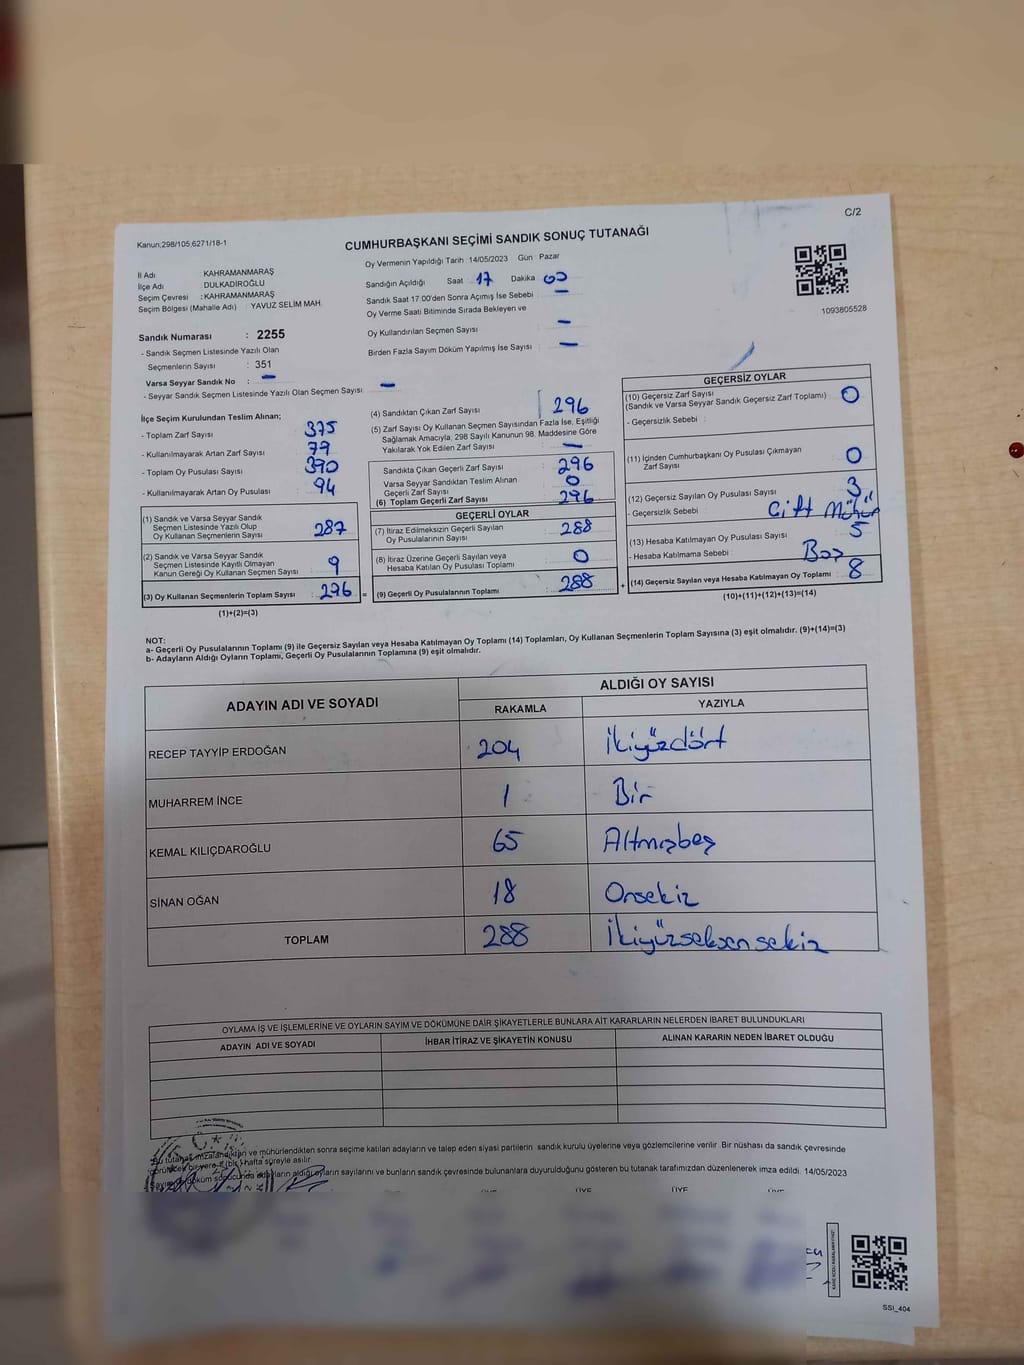 C/2
Kanun:298/105,6271/18-1
CUMHURBAŞKANI SEÇİMİ SANDIK SONUÇ TUTANAĞI
İl Adı : KAHRAMANMARAŞ
İlçe Adı : DULKADİROĞLU
Seçim Çevresi : KAHRAMANMARAŞ
Seçim Bölgesi (Mahalle Adı) : YAVUZ SELİM MAH.
Oy Vermenin Yapıldığı Tarih 14/05/2023 Gün Pazar
Sandığın Açıldığı Saat 17 Dakika 00
Sandık Saat 17:00'den Sonra Açılmış İse Sebebi –
Oy Verme Saati Bitiminde Sırada Bekleyen ve
Oy Kullandırılan Seçmen Sayısı –
Birden Fazla Sayım Döküm Yapılmış İse Sayısı –
1093805528
Sandık Numarası : 2255
- Sandık Seçmen Listesinde Yazılı Olan
Seçmenlerin Sayısı : 351
Varsa Seyyar Sandık No : –
- Seyyar Sandık Seçmen Listesinde Yazılı Olan Seçmen Sayısı : –
İlçe Seçim Kurulundan Teslim Alınan;
- Toplam Zarf Sayısı : 375
- Kullanılmayarak Artan Zarf Sayısı : 79
- Toplam Oy Pusulası Sayısı : 390
- Kullanılmayarak Artan Oy Pusulası : 94
(1) Sandık ve Varsa Seyyar Sandık
Seçmen Listesinde Yazılı Olup
Oy Kullanan Seçmenlerin Sayısı : 287
(2) Sandık ve Varsa Seyyar Sandık
Seçmen Listesinde Kayıtlı Olmayan
Kanun Gereği Oy Kullanan Seçmen Sayısı : 9
(3) Oy Kullanan Seçmenlerin Toplam Sayısı : 296
(1)+(2)=(3)
(4) Sandıktan Çıkan Zarf Sayısı : 296
(5) Zarf Sayısı Oy Kullanan Seçmen Sayısından Fazla İse, Eşitliği
Sağlamak Amacıyla, 298 Sayılı Kanunun 98. Maddesine Göre
Yakılarak Yok Edilen Zarf Sayısı : –
Sandıkta Çıkan Geçerli Zarf Sayısı : 296
Varsa Seyyar Sandıktan Teslim Alınan
Geçerli Zarf Sayısı : 0
(6) Toplam Geçerli Zarf Sayısı : 296
GEÇERLİ OYLAR
(7) İtiraz Edilmeksizin Geçerli Sayılan
Oy Pusulalarının Sayısı : 288
(8) İtiraz Üzerine Geçerli Sayılan veya
Hesaba Katılan Oy Pusulası Toplamı : 0
= (9) Geçerli Oy Pusulalarının Toplamı : 288 +
GEÇERSİZ OYLAR
(10) Geçersiz Zarf Sayısı
(Sandık ve Varsa Seyyar Sandık Geçersiz Zarf Toplamı) : 0
- Geçersizlik Sebebi :
(11) İçinden Cumhurbaşkanı Oy Pusulası Çıkmayan
Zarf Sayısı : 0
(12) Geçersiz Sayılan Oy Pusulası Sayısı : 3
- Geçersizlik Sebebi : Çift Mühür
(13) Hesaba Katılmayan Oy Pusulası Sayısı : 5
- Hesaba Katılmama Sebebi : Boş
(14) Geçersiz Sayılan veya Hesaba Katılmayan Oy Toplamı : 8
(10)+(11)+(12)+(13)=(14)
NOT:
a- Geçerli Oy Pusulalarının Toplamı (9) ile Geçersiz Sayılan veya Hesaba Katılmayan Oy Toplamı (14) Toplamları, Oy Kullanan Seçmenlerin Toplam Sayısına (3) eşit olmalıdır. (9)+(14)=(3)
b- Adayların Aldığı Oyların Toplamı, Geçerli Oy Pusulalarının Toplamına (9) eşit olmalıdır.
ADAYIN ADI VE SOYADI ALDIĞI OY SAYISI
RAKAMLA YAZIYLA
RECEP TAYYİP ERDOĞAN 204 İkiyüzdört
MUHARREM İNCE 1 Bir
KEMAL KILIÇDAROĞLU 65 Altmışbeş
SİNAN OĞAN 18 Onsekiz
TOPLAM 288 İkiyüzseksensekiz
OYLAMA İŞ VE İŞLEMLERİNE VE OYLARIN SAYIM VE DÖKÜMÜNE DAİR ŞİKAYETLERLE BUNLARA AİT KARARLARIN NELERDEN İBARET BULUNDUKLARI
ADAYIN ADI VE SOYADI İHBAR İTİRAZ VE ŞİKAYETİN KONUSU ALINAN KARARIN NEDEN İBARET OLDUĞU
Bu tutanak imzalandıktan ve mühürlendikten sonra seçime katılan adayların ve talep eden siyasi partilerin sandık kurulu üyelerine veya gözlemcilerine verilir. Bir nüshası da sandık çevresinde
görülecek bir yere 1 (bir) hafta süreyle asılır.
Sayım döküm sonucunda adayların aldığı oyların sayılarını ve bunların sandık çevresinde bulunanlara duyurulduğunu gösteren bu tutanak tarafımızdan düzenlenerek imza edildi. 14/05/2023
ÜYE ÜYE ÜYE ÜYE
SSI_404